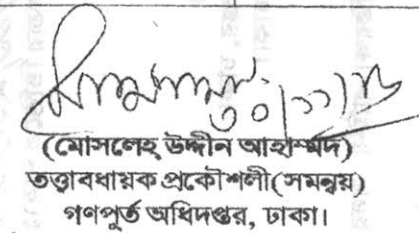 ৩০/১১/১৮
(মোসলেহ্ উদ্দীন আহাম্মদ)
তত্ত্বাবধায়ক প্রকৌশলী(সমন্বয়)
গণপূর্ত অধিদপ্তর, ঢাকা।